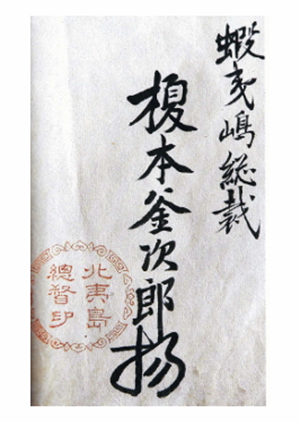 蝦夷嶋総裁
榎本釜次郎揚
北夷島
總督印